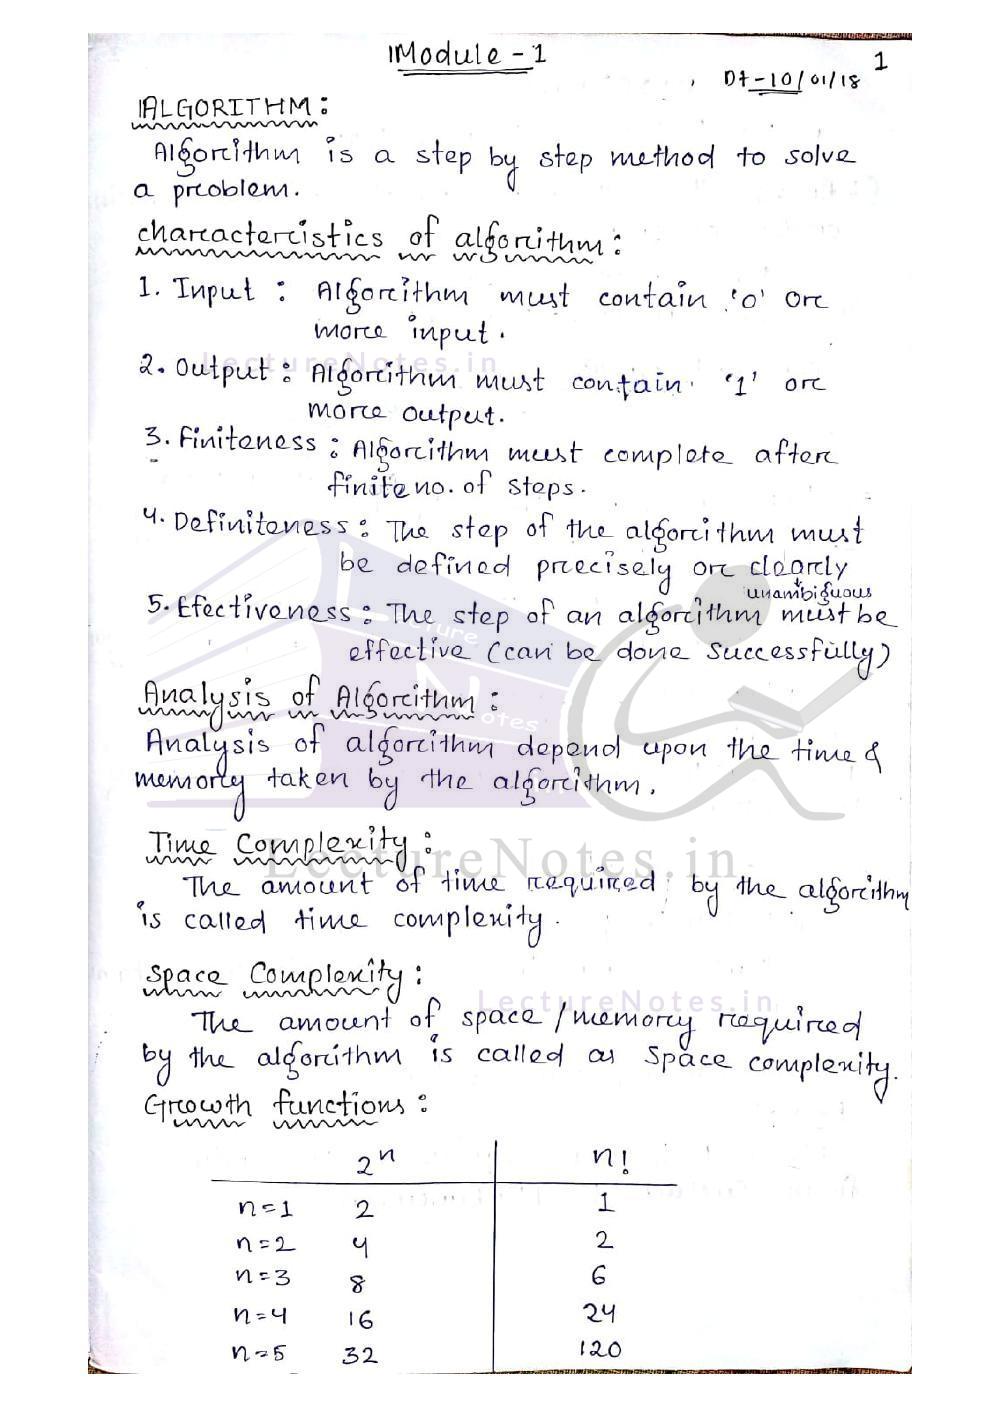 Module - 1
1
Dt - 10/01/18
ALGORITHM :
Algorithm is a step by step method to solve
a problem.
characteristics of algorithm :
1. Input : Algorithm must contain '0' or
more input.
LectureNotes.in
2. Output : Algorithm must contain '1' or
more output.
3. Finiteness : Algorithm must complete after
finite no. of steps.
4. Definiteness : The step of the algorithm must
be defined precisely or clearly
unambiguous
5. Efectiveness : The step of an algorithm must be
effective (can be done successfully)
Lecture
Notes
Analysis of Algorithm :
Analysis of algorithm depend upon the time &
memory taken by the algorithm.
Time Complexity :
LectureNotes.in
The amount of time required by the algorithm
is called time complexity.
Space Complexity :
LectureNotes.in
The amount of space / memory required
by the algorithm is called as space complexity.
Growth functions :
2^n n!
n=1 2 1
n=2 4 2
n=3 8 6
n=4 16 24
n=5 32 120